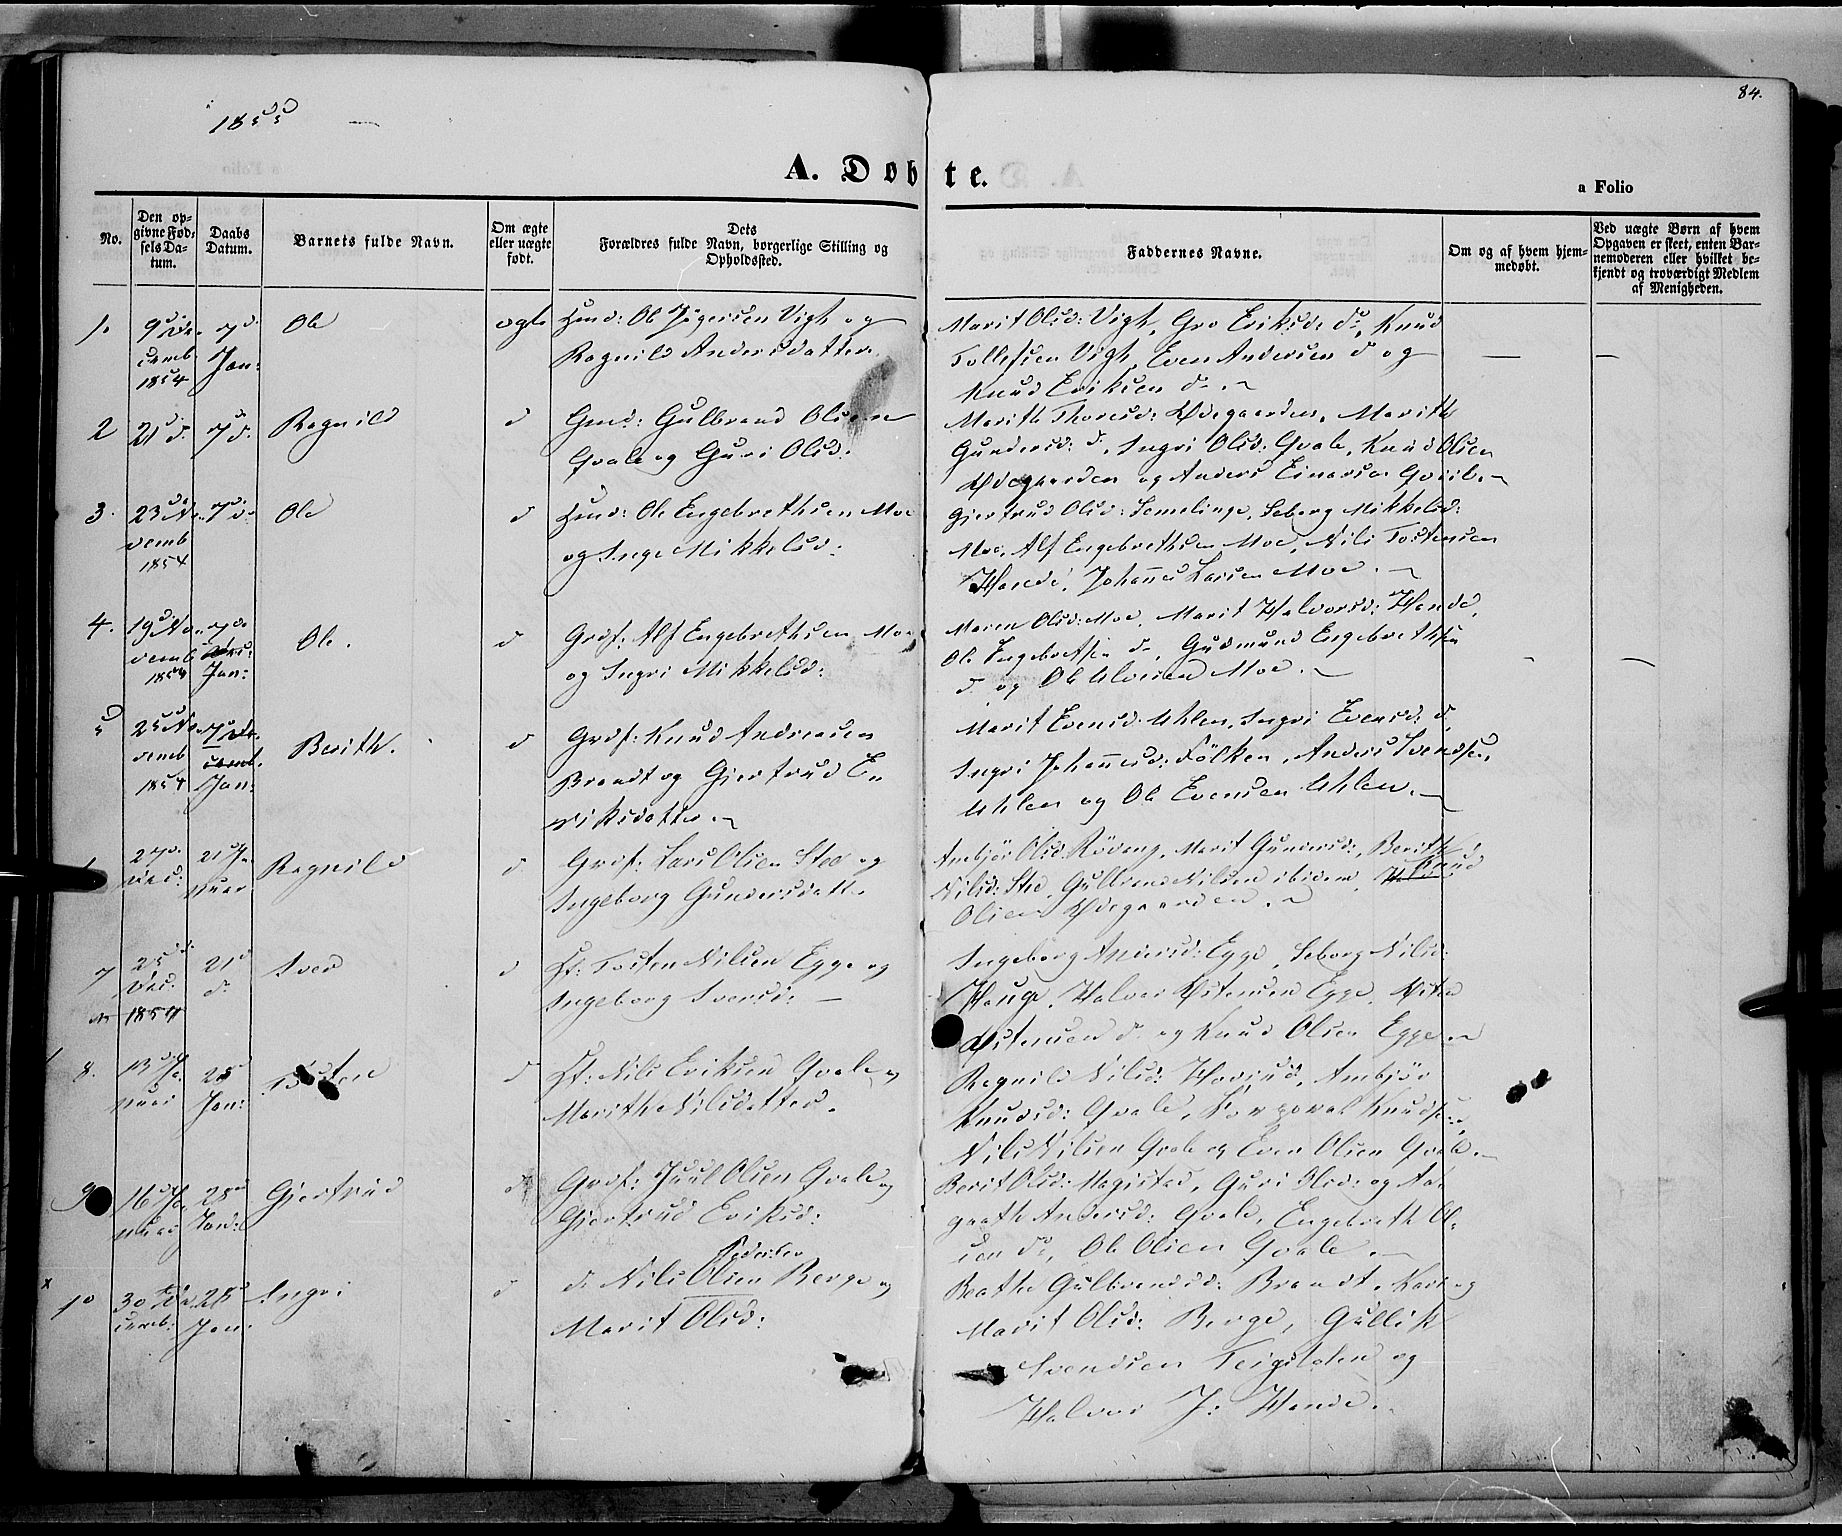 84.
1855
A. Døbte.
a Folio
No.
Den op-
givne Fød-
sels Da-
tum.
Daabs
Datum.
Barnets fulde Navn.
Om ægte
eller uægte
født.
Dets
Forældres fulde Navn, borgerlige Stilling og
Opholdssted.
Faddernes Navne.
Om og af hvem hjem-
medøbt.
Ved uægte Børn af hvem
Opgaven er skeet, enten Bar-
nemoderen eller hvilket be-
kjendt og troværdigt Medlem
af Menigheden.
1.
9 De-
cemb
1854
7 d.
Jan:
Ole
ægte
Huusd: Ole Vigh og
Ragnild Andersdatter
Marit Olsd: Vigh, Gro Eriksd: do, Knud
Tollefsen Vigh, Even Andersen d og
Knud Eriksen do.
2
21 d.
7 d.
Ragnild
d
Gmd: Gulbrand Olsen
Qvale og Guri Olsd:
Marith Thoresd: Ødegaarden, Marith
Gundersd: d, Ingri Olsd: Qvale, Knud Olsen
Ødegaarden og Anders Einarsen Qvale.
3.
23 No-
vemb
1854
7 d.
Ole
d
Huusd: Ole Engebrethsen Moe
og Inge Mikkelsd:
Gjertrud Olsd: Semelinge, Seborg Mikkelsd:
Moe, Alf Engebrethsen Moe, Nils Tostensen
Hande, Johannes Larsen Moe.
4.
19 No-
vemb
1854
7 d
Jan:
Ole.
d
Grdf: Alf Engebrethsen Moe
og Ingri Mikkelsd:
Maren Olsd: Moe, Marit Halvorsd: Hande,
Ole Engebrethsen do, Gudmund Engebrethsen
d og Ole Alvesen Moe.
5
25 No-
vemb
1854
7 De-
cemb.
Jan:
Berith.
d
Grdf: Knud Andreasen
Brandt og Gjertrud E-
riksdatter.
Marit Evensd: Uhlen, Ingri Evensd: d
Ingri Johannesd: Fölken, Anders Svendsen,
Uhlen og Ole Evensen Uhlen.
27 d.
Dec:
21 Ja-
nuar
Ragnild
d
Grdf: Lars Olsen Stee og
Ingeborg Gundersdatt.
Ambjör Olsd: Röverg, Marit Gundersd:, Berith
Nilsd: Stee, Gulbrand Nilsen ibidem, Knud
Olsen Ødegaarden.
7
25 d.
Dec.
1854
21 d
d.
Iver
d
Tosten Nilsen Egge og
Ingeborg Iversd:
Ingeborg Andersd: Egge, Seborg Nilsd:
Hauge, Halvor Østensen Egge,
Østensen d. og Knud Olsen Egge.
8.
13 Ja-
nuar
28
Jan:
Tosten
d
Nils Eriksen Qvale og
Marithe Nilsdatter.
Ragnild Nilsd: Ambjör
Knudsd: Qvale, Korporal Knudsen,
Nils Nilsen Qvale og Even Olsen Qvale.
9
16 Ja-
nuar
28
Jan:
Gjertrud
d
Grdf: Juul Olsen Qvale og
Gjertrud Eriksd:
Berit Olsd: Magistad, Guri Olsd: og Aa-
gaath Andersd: Qvale, Engebreth Ol-
sen do, Ole Olsen Qvale.
x
10
30 De-
cemb:
28
Jan:
Ingri
d
Pedersen
d. Nils Olsen Berge og
Marit Olsd:
Beathe Gulbrandsd: Brandt, Kari og
Marit Olsd: Berge, Gullik
Svendsen og
Halvor J: Hande.